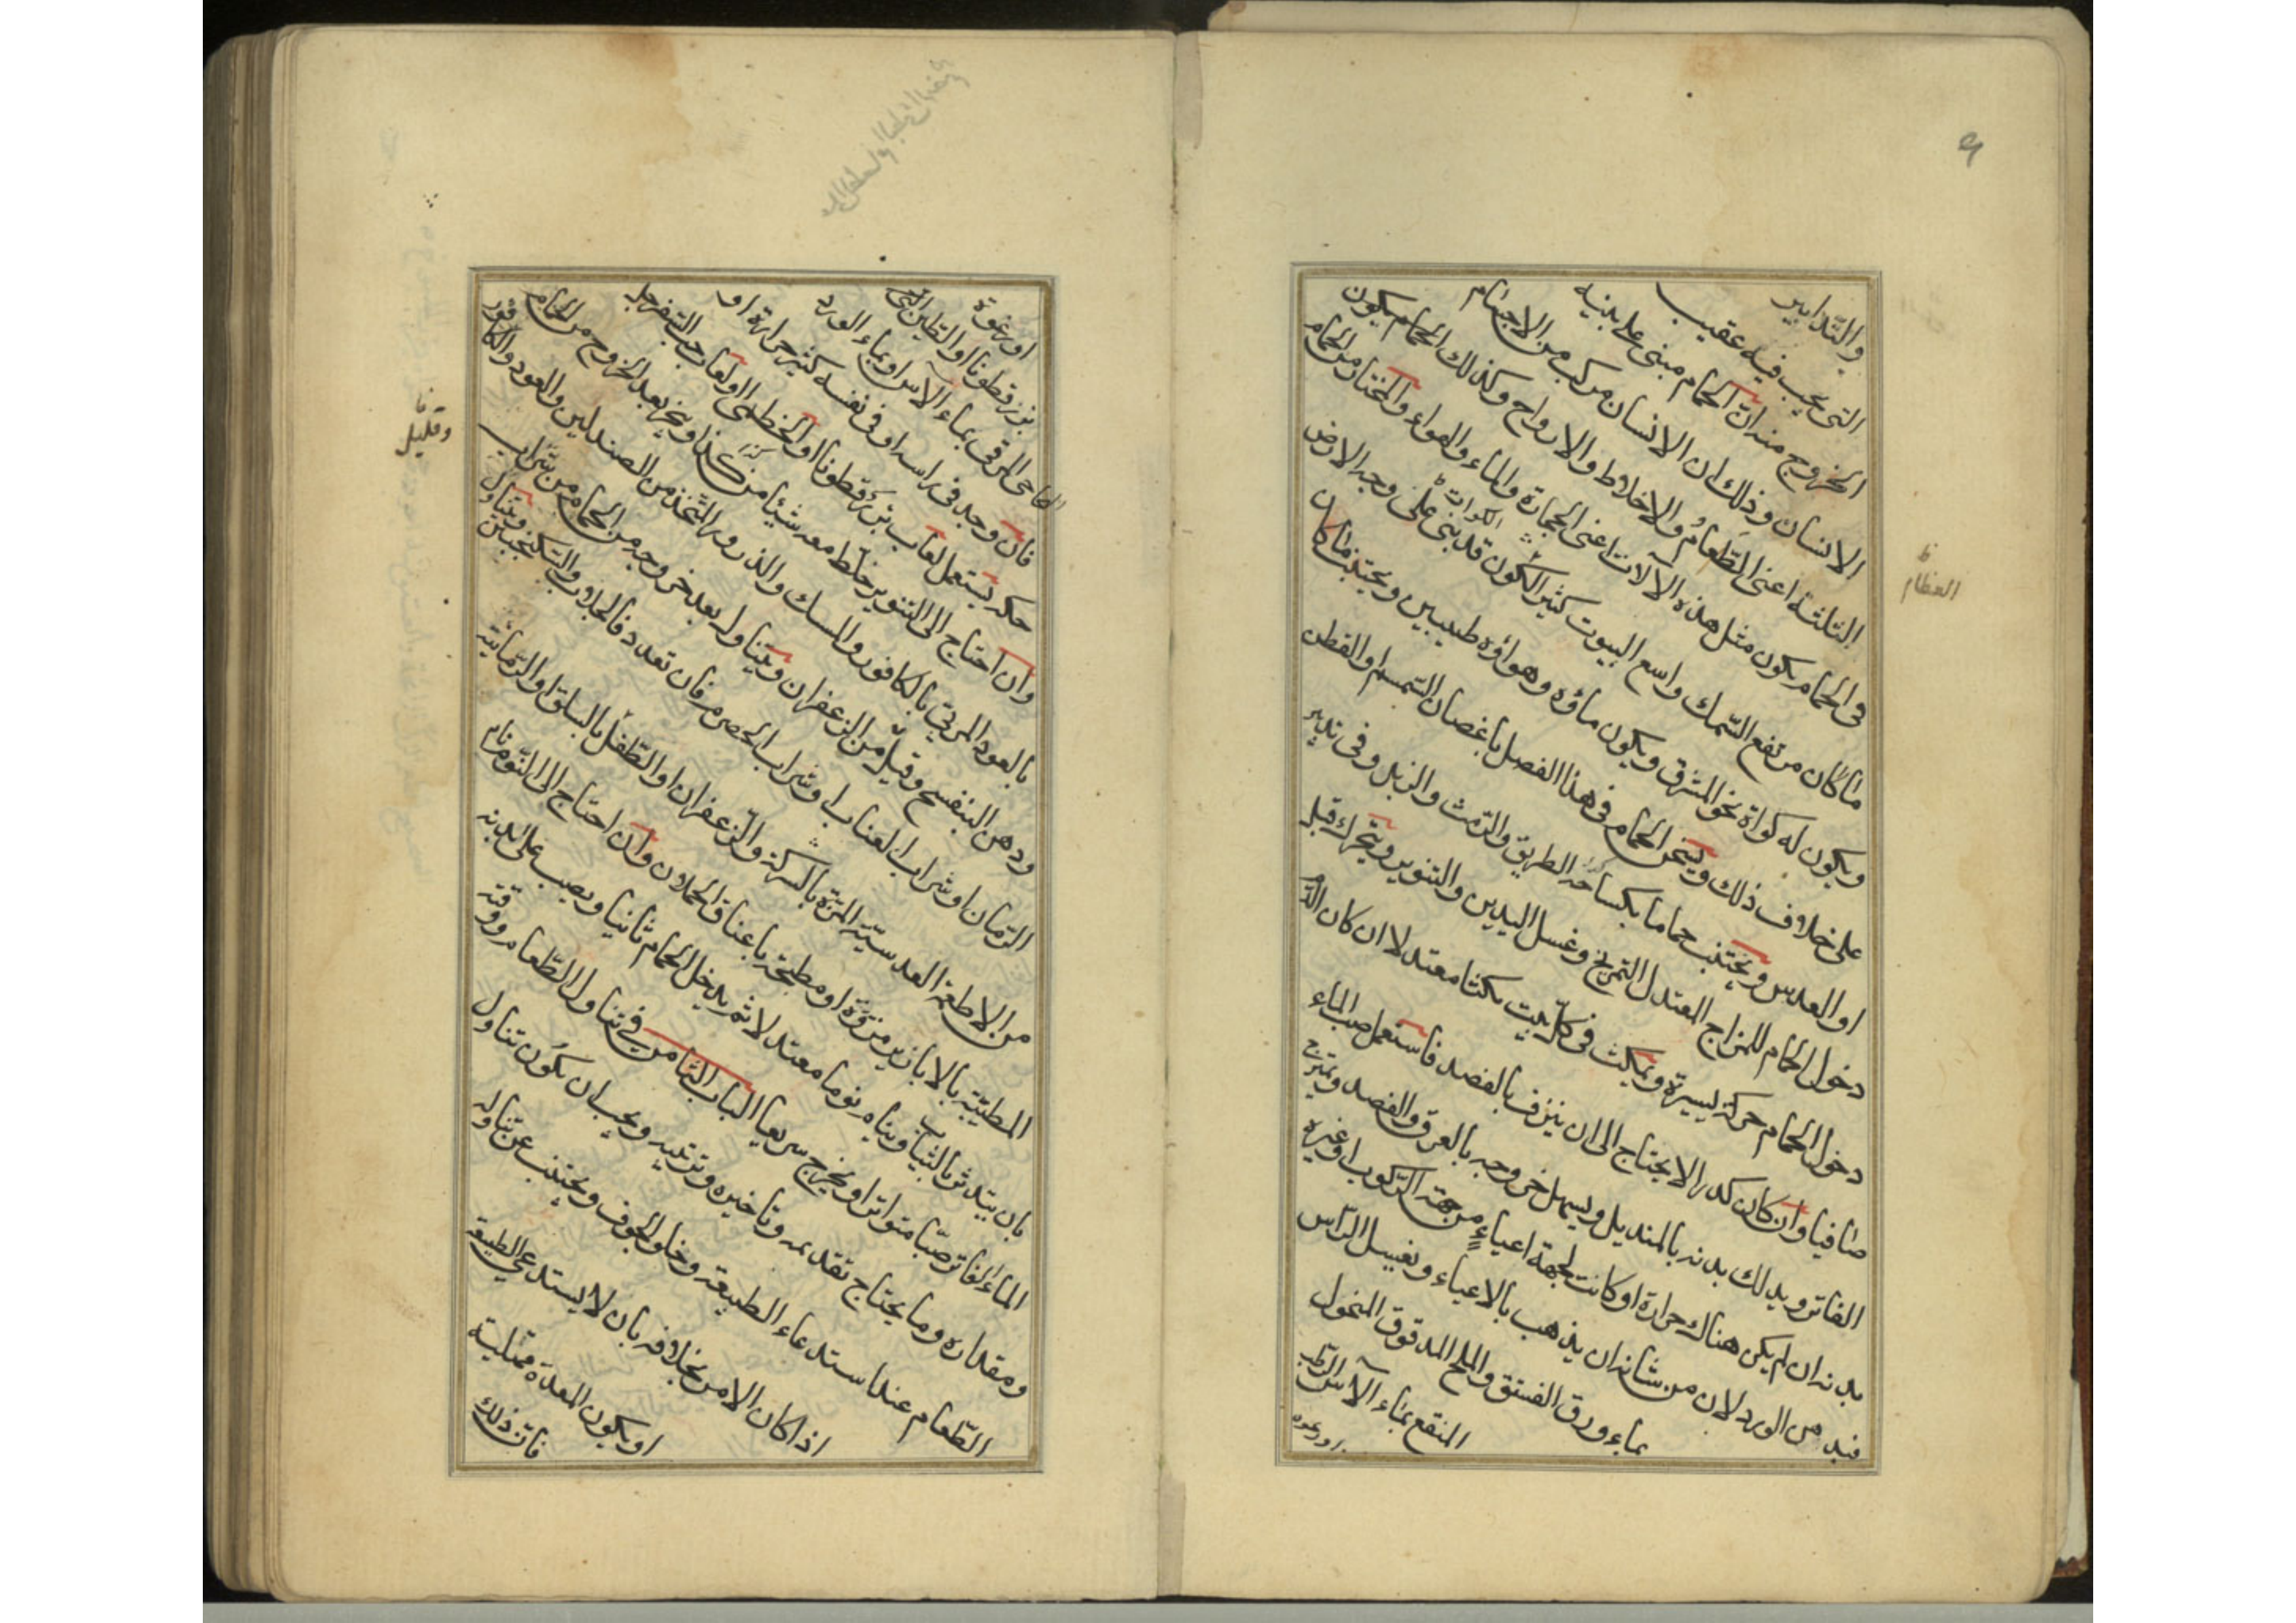 ٩
والتدابير
التى يجب فيه عقيب
الخروج منه ان الحمام مبنى على بنية
الانسان وذلك ان الانسان مركب من الاجسام
الثلثة اعنى الطعام والاخلاط والارواح وكذلك الحمام يكون
فى الحمام يكون مثل هذه الآلات اعنى الحجارة والماء والهواء والمختار من الحمام
ما كان مرتفع السمك واسع البيوت كثير الكون قد بنى على وجه الارض
الكوات
ويكون له كواة نحو المشرق ويكون ماؤه وهواؤه طيبين ويجتنب ما كان
على خلاف ذلك ويسخن الحمام فى هذا الفصل باغصان السمسم او القطن
او العدس ويجتنب حماما بكساحة الطريق والرمث والزبل وفى تدبير
دخول الحمام للمزاج المعتدل التمريخ وغسل اليدين والتنوير ويتحرك قبل
دخول الحمام حركة يسيرة ويمكث فى كل بيت مكثا معتدلا ان كان الدم
صافيا وان كان كدرا لا يحتاج الى ان ينزف بالفصد فاستعمل صب الماء
الفاتر ويدلك بدنه بالمنديل ويسهل خروجه بالعرق والفصد ويمرخ
بدنه ان لم يكن هناك حرارة او كانت لجهة اعياء من جهة الركوب او غيره
فبدهن الورد لان من شانه ان يذهب بالاعياء ويغسل الراس
بماء ورق الفستق والملح المدقوق المنخول
المنقع بماء الآس الرطب
او رغوه
العظام
او رغوة
بزر قطونا او الطين
المرقى بماء الآس او بماء الورد
فان وجد فى راسه او فى نفسه كثير حرارة او
حكة يستعمل لعاب بزر قطونا او الخطمى او لعاب حب السفرجل
وان احتاج الى التنوير خلط معه شيئا من كذا او يتبخر بعد الخروج من الحمام
بالعود المربى بالكافور والمسك والذرور المتخذ من الصندلين والعود والكافور
ودهن البنفسج وقليل من الزعفران ويتناول بعد خروجه من الحمام من شراب
الرمان او شراب العناب او شراب الحصرم فان تعدد فالجلاب والسكنجبين ويتناول
من الاطعمة العدسية المزة بالسركة والزعفران او الطفل بالسلق او الرمانية
المطيبة بالابازير مزورة او مطبخة باعناق الحملان وان احتاج الى النوم نام
بان يتدثر بالثياب وينام نوما معتدلا ثم يدخل الحمام ثانيا ويصب على بدنه
الماء الفاتر صبا متواترا ويخرج سريعا الباب الثامن فى تناول الطعام ووقته
ومقداره وما يحتاج تقديمه وتاخيره وترتيبه ويجب ان يكون تناول
الطعام عند استدعاء الطبيعة وخلو الجوف ويجتنب عن تناوله
اذا كان الامر بخلافه بان لا يستدعى الطبيعة
او يكون المعدة ممتلية
فان ذلك
وقليل